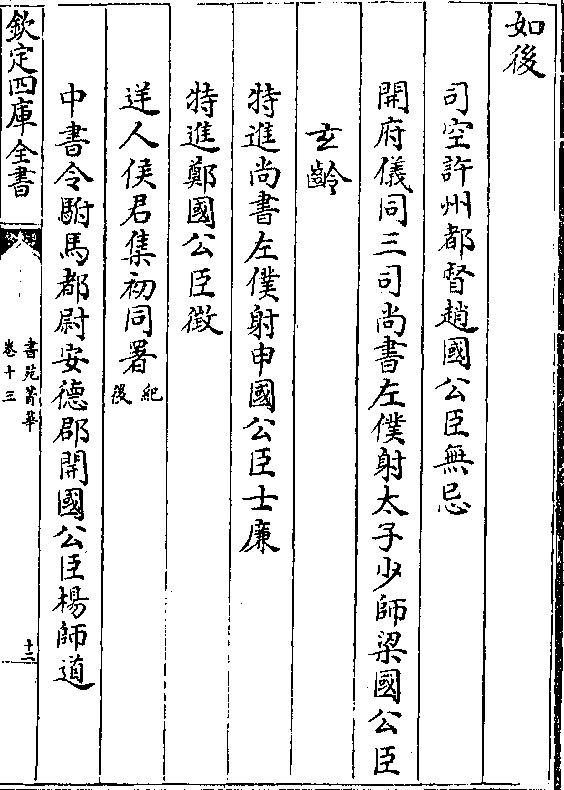 如後
司空許州都督趙國公臣無忌
開府儀同三司尚書左僕射太子少師梁國公臣
玄齡
特進尚書左僕射申國公臣士廉
特進鄭國公臣徵
逆人侯君集初同署
中書令駙馬都尉安德郡開國公臣楊師道
欽定四庫全書
書苑菁華
卷十三
十二